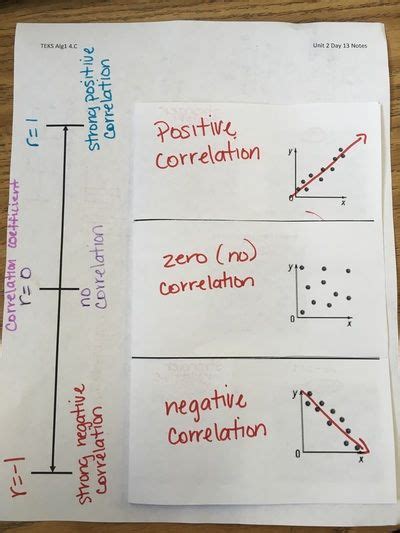 TEKS Alg1 4.C
Unit 2 Day 13 Notes
correlation coefficient
r=1
strong positive
correlation
r=0
no
correlation
r=-1
strong negative
correlation
Positive
correlation
y
0
x
zero (no)
correlation
y
0
x
negative
correlation
y
0
x